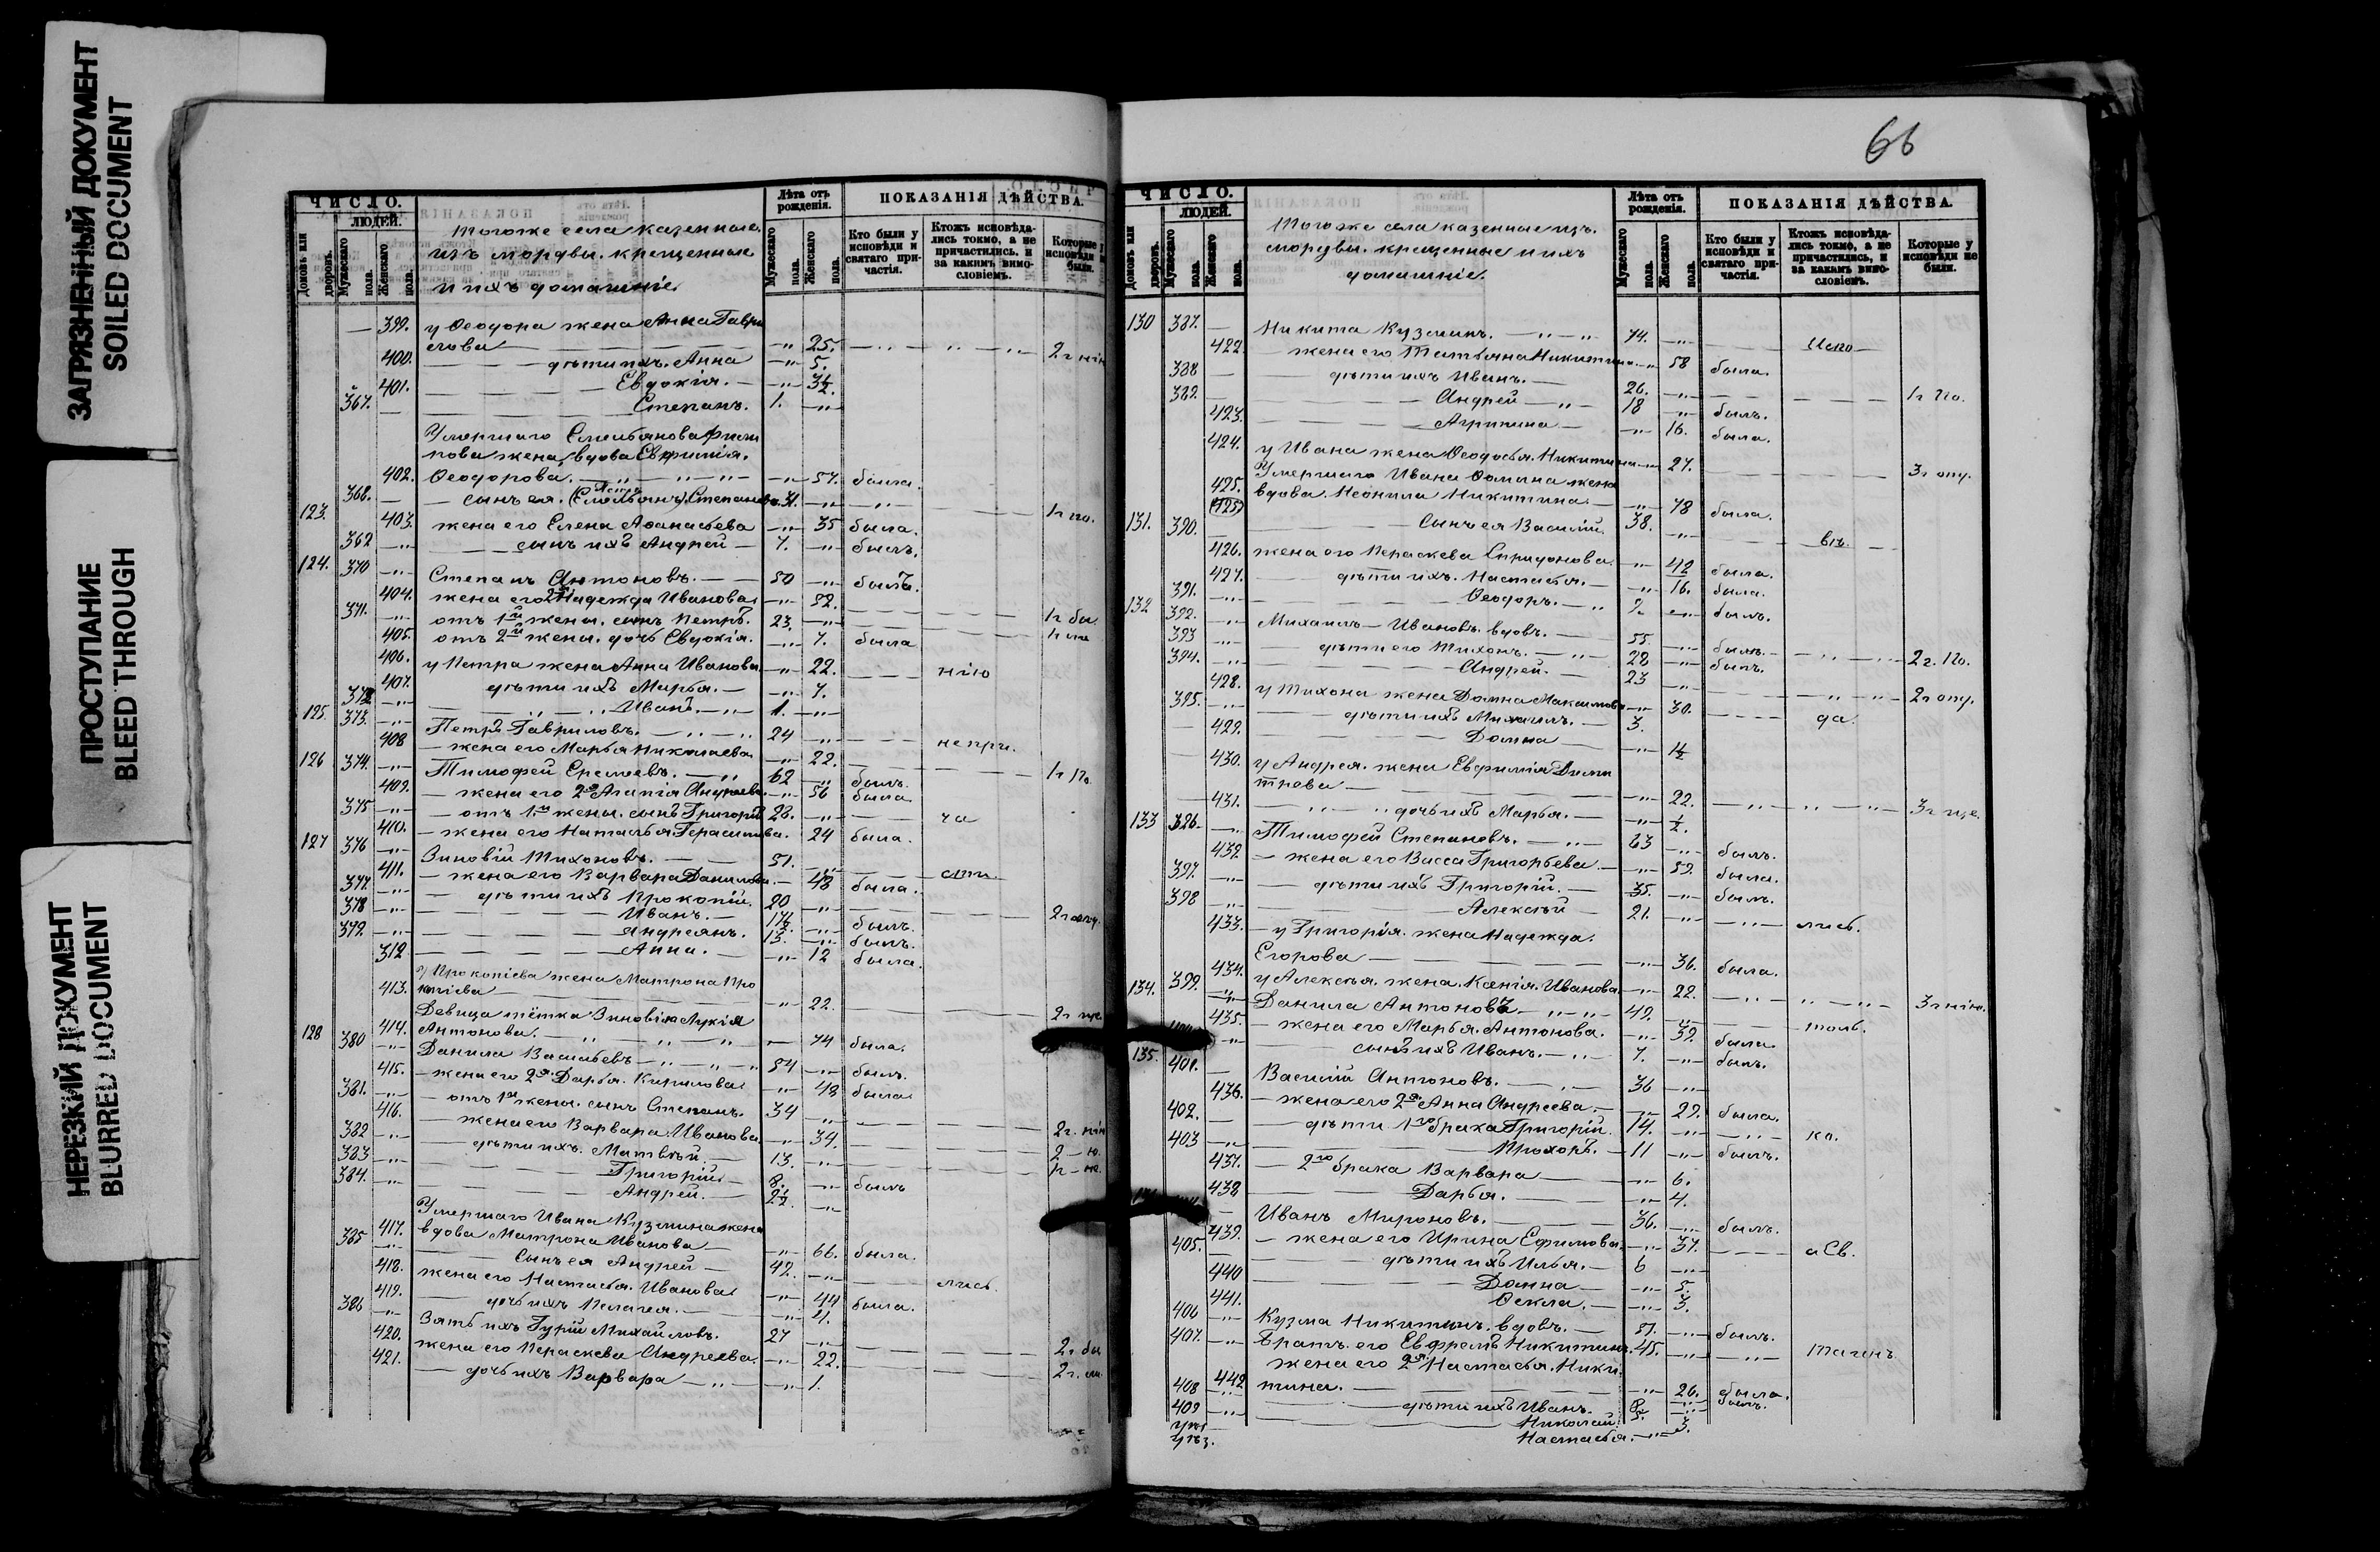 ЗАГРЯЗНЕННЫЙ ДОКУМЕНТ
SOILED DOCUMENT
ПРОСТУПАНИЕ
BLEED THROUGH
НЕРЕЗКИЙ ДОКУМЕНТ
BLURRED DOCUMENT
ЧИСЛО.
ЛЮДЕЙ.
Домовъ или дворовъ.
Мужескаго пола.
Женскаго пола.
Тогоже села казенные
изъ мордвы крещенные
и ихъ домашніе.
Лѣта отъ рожденія.
Мужескаго пола.
Женскаго пола.
ПОКАЗАНІЯ ДѢЙСТВА.
Кто были у исповѣди и святаго причастія.
Ктожъ исповѣдались токмо, а не причастились, и за какимъ винословіемъ.
Которые у исповѣди не были.
399. у Ѳеодора жена Анна Гаври
лова 25.
400. дѣти ихъ. Анна 5.
401. Евдокія. 3½.
367. Степанъ. 1.
Умершаго Емельянова Фили
пова жена, вдова Евфимія.
402. Ѳеодорова 57. была.
368. сынъ ея. (Емельянъ) Степановъ
123. 403. жена его Елена Аѳанасьева 35 была.
362 сынъ ихъ Андрей 7. былъ.
124. 370 Степанъ Антоновъ. 50 былъ.
404. жена его 2я Надежда Иванова 52.
371. отъ 1й жены. сынъ Петръ. 23.
405. отъ 2й жены. дочь Евдокія. 7. была
406. у Петра жена Анна Иванова 22. нію
407. дѣти ихъ Марья. 7.
372 Иванъ. 1.
125. 373. Петръ Гавриловъ. 24
408 жена его Марья Николаева 22. не при.
126 374. Тимофей Еремеевъ. 62 былъ. 1г по
409. жена его 2я Агапія Андреева 56 была
375 отъ 1й жены. сынъ Григорій 28. ча
410. жена его Наталья Герасимова. 24 была.
127 376 Зиновій Тихоновъ. 51.
411. жена его Варвара Данилова. 48 была.
377. дѣти ихъ Прокопій. 20
378 Иванъ. 17½. былъ.
379. Андреянъ. 13. былъ.
312 Анна. 12 была.
у Прокопіева жена Матрона Про
413. копіева 22.
Девица тётка Зиновія Лукія
414. Антонова. 74 была.
128 380 Данила Васильевъ 54 былъ.
415. жена его 2я Дарья. Кирилова 48 была
381. отъ 1й жены. сынъ Степанъ. 34
416. жена его Варвара Иванова 34.
382 дѣти ихъ. Матвѣй 13.
383 Григорій 8. былъ
384. Андрей. 2½.
Умершаго Ивана Кузмина жена
417. вдова Матрона Иванова 66. была.
385 Сынъ ея Андрей 42. лись.
418. жена его Настасья. Иванова 44 была.
419. дочь ихъ Пелагея. 4.
386 Зять ихъ Гурій Михайловъ. 27
420. жена его Параскева Андреева. 22.
421. дочь ихъ Варвара 1.
66
ЧИСЛО.
ЛЮДЕЙ.
Домовъ или дворовъ.
Мужескаго пола.
Женскаго пола.
Тогоже села казенные изъ
мордвы. крещенные и ихъ
домашніе.
Лѣта отъ рожденія.
Мужескаго пола.
Женскаго пола.
ПОКАЗАНІЯ ДѢЙСТВА.
Кто были у исповѣди и святаго причастія.
Ктожъ исповѣдались токмо, а не причастились, и за какимъ винословіемъ.
Которые у исповѣди не были.
130 387. Никита Кузминъ. 74. Испо
422 жена его Татьяна Никитина 58 была.
388 дѣти ихъ Иванъ. 26. 1г По.
389. Андрей 18 былъ.
423. Агрипина 16. была.
424. у Ивана жена Ѳеодосья. Никитина 27. 3г опу.
Умершаго Ивана Ѳомина жена
425. вдова. Неонила Никитина. 78 была.
131. 390. Сынъ ея Василій 38. вѣ.
426. жена его Параскева Спиридонова. 42 была.
427. дѣти ихъ. Настасья. 16. была.
391. Ѳеодоръ. былъ.
132 392. Михаилъ Ивановъ. вдовъ. 55. былъ.
393 дѣти его Тихонъ. 28 былъ. 2г. По.
394. Андрей. 23
428. у Тихона жена Домна Максимова 30. да. 2г опу.
395. дѣти ихъ Михаилъ. 3.
429. Домна 1½
430. у Андрея. жена Евфимія Дими
трева 22. 3г ще.
431. дочь ихъ Марья. ½.
133 396 Тимофей Степановъ. 63 былъ.
432. жена его Васса Григорьева 59. была.
397. дѣти ихъ Григорій. 35. былъ.
398 Алексѣй 21. лись.
433. у Григорія. жена Надежда.
Егорова 36. была.
434. у Алексѣя. жена. Ксенія. Иванова. 22. 3г нію.
134. 399. Данила Антоновъ. 42. толь.
435. жена его Марья. Антонова. 39. была.
сынъ ихъ Иванъ. 7. былъ.
135. 401. Василій Антоновъ. 36
436. жена его 2я Анна Андреева. 29. была.
402. дѣти 1го брака Григорій. 14. ко.
403 Прохоръ. 11 былъ.
437. 2го брака Варвара 6.
438 Дарья. 4.
Иванъ Мироновъ. 36. былъ.
439. жена его Ирина Ефимова. 37. и Св.
405. дѣти ихъ Илья. 6
440 Домна 5.
441. Ѳекла. 3.
406 Кузма Никитинъ. вдовъ. 51. былъ.
407. Братъ. его Евфремъ Никитинъ. 45.
жена его 2я Настасья. Ники
442 тина. 26. была.
408 дѣти ихъ Иванъ. 8. былъ.
409 Николай 5.
Настасья. 3.